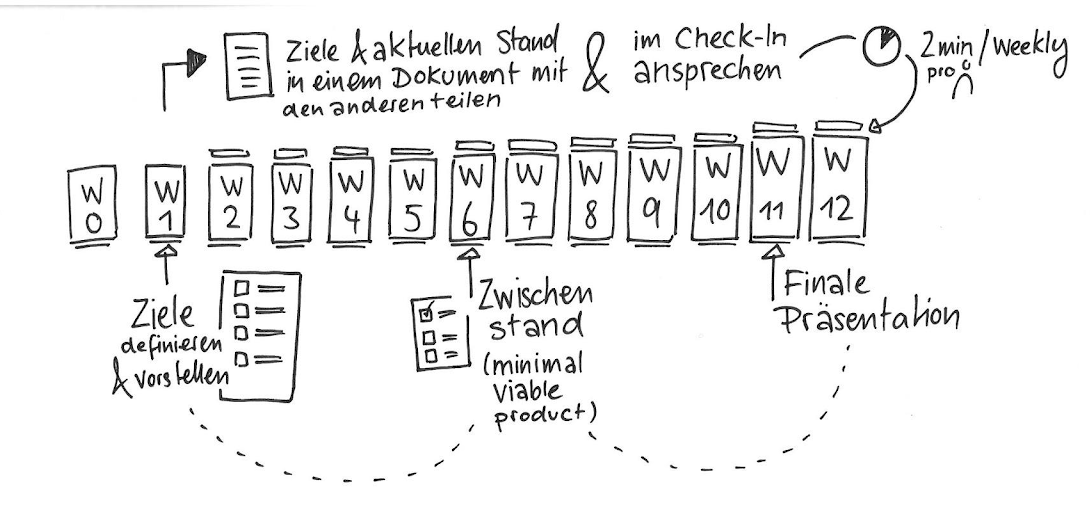 Ziele & aktuellen Stand
in einem Dokument mit
den anderen teilen
&
im Check-In
ansprechen
2min/Weekly
pro
W
0
W
1
W
2
W
3
W
4
W
5
W
6
W
7
W
8
W
9
W
10
W
11
W
12
Ziele
definieren
& vorstellen
Zwischen
stand
(minimal
viable
product)
Finale
Präsentation